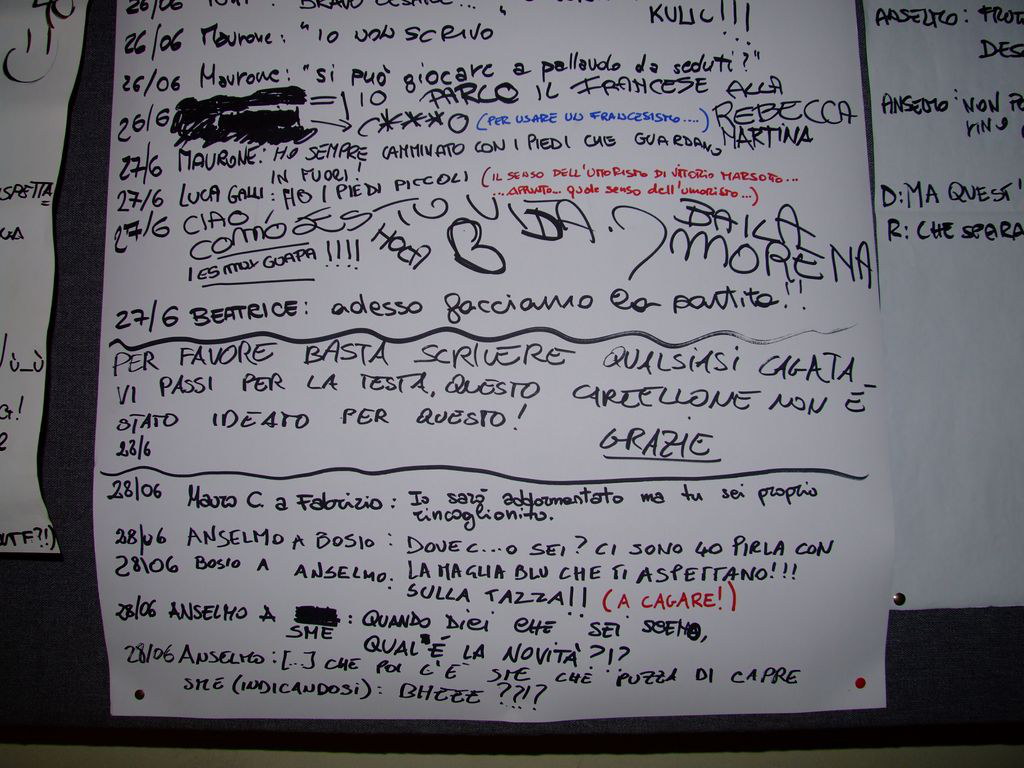 26/06
KULIC!!!
26/06 Maurone: "IO NON SCRIVO
26/06 Maurone: "si può giocare a pallavolo da seduti?"
26/6 IO PARLO IL FRANCESE ALLA REBECCA
C***O (PER USARE UN FRANCESISMO....) MARTINA
27/6 MAURONE: HO SEMPRE CAMMINATO CON I PIEDI CHE GUARDANO
IN FUORI!
27/6 LUCA GALLI: HO I PIEDI PICCOLI (IL SENSO DELL'UMORISTO DI VITTORIO MARSOTO...
...APPUNTO... quale senso dell'umoristo...)
27/6 CIAO! COMO ES TU VIDA? BAILA
MORENA
HOLA
!ES MUY GUAPA!!!!
27/6 BEATRICE: adesso facciamo la partita!!
PER FAVORE BASTA SCRIVERE QUALSIASI CAGATA
VI PASSI PER LA TESTA, QUESTO CARTELLONE NON È
STATO IDEATO PER QUESTO!
28/6 GRAZIE
28/06 Mauro C. a Fabrizio: Io sarò addormentato ma tu sei proprio
rincoglionito.
28/06 ANSELMO A BOSIO: DOVE C...O SEI? CI SONO 40 PIRLA CON
LA MAGLIA BLU CHE TI ASPETTANO!!!
28/06 BOSIO A ANSELMO. SULLA TAZZA!! (A CAGARE!)
28/06 ANSELMO A SME: QUANDO DICI CHE SEI SCEMO,
QUAL'È LA NOVITÀ?!?
28/06 ANSELMO: [...] CHE POI C'È SME CHE PUZZA DI CAPRE
SME (INDICANDOSI): BHEEE ??!?
SPETTA
GA
ù_ù
G!
2
NTE?!)
ANSELMO:
DES
ANSELMO: NON
D: MA QUEST'
R: CHE SPARA